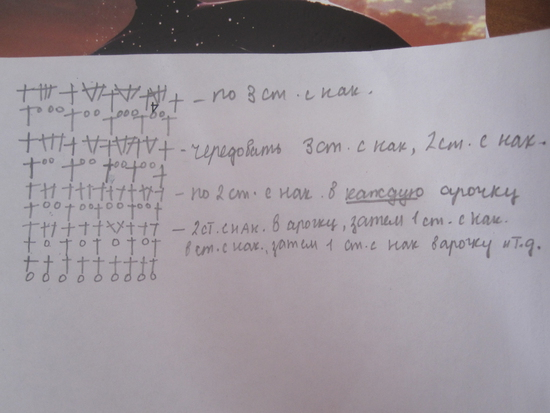 – по 3 ст. с нак.
– чередовать 3 ст. с нак, 2 ст. с нак.
– по 2 ст. с нак. в каждую арочку
– 2 ст. с нак. в арочку, затем 1 ст. с нак.
в ст. с нак., затем 1 ст. с нак в арочку и т.д.